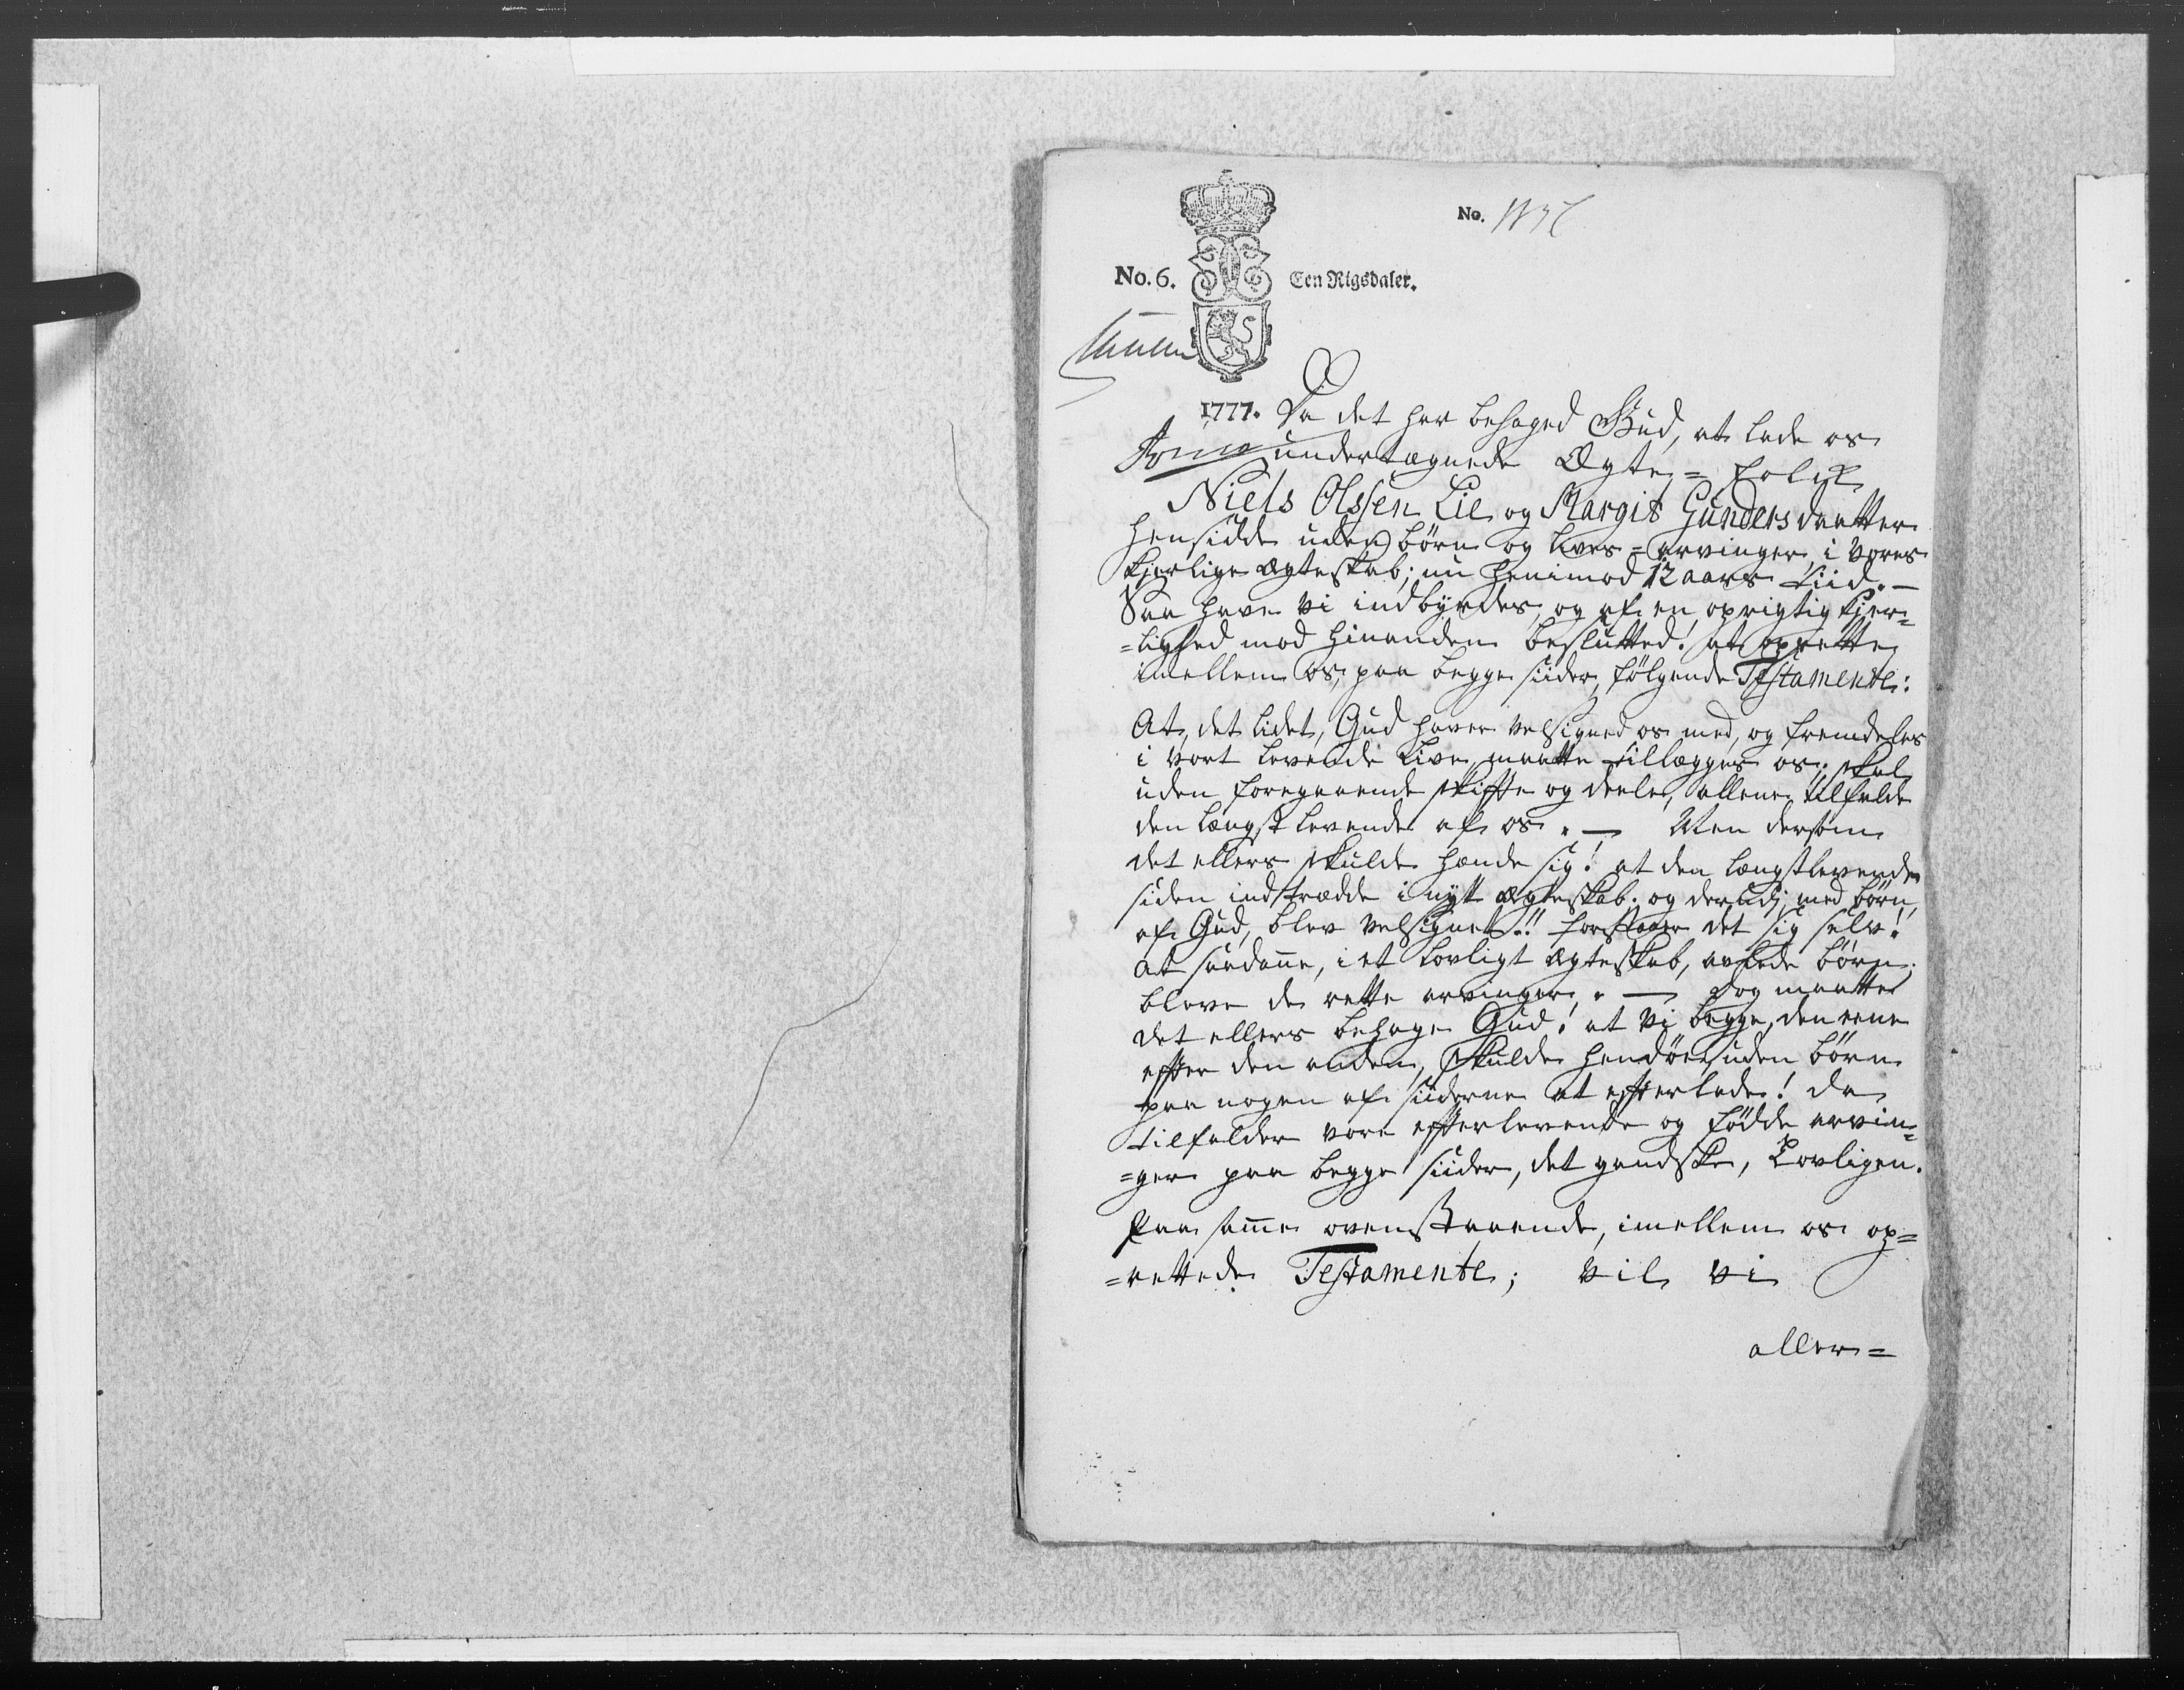 No.
No. 6.
Een Rigsdaler.
1777. Da det har behaged Gud, at lade os
undertægnede Ægte-folk
Niels Olssen Lie og Margit Gundersdaatter
hensidde uden børn og lives-arvinger, i vores
kjerlige ægteskab; nu henimod 12 aars tiid.—
Saa have vi indbyrdes, og af en oprigtig kjer=
=lighed mod hinanden besluttet! at oprette
imellem os, paa begge siider, følgende Testamente:
At, det lidet, Gud haver velsigned os med, og fremdeles
i vort levende Live maatte tillægges os; skal
uden foregaaende skifte og deele, allene tilfalde
den længst levende af os. — Men dersom
det ellers skulde hænde sig! at den længstlevende
siden indtrædde i nytt ægteskab. og derudj, med børn,
af Gud, blev velsignet!! forstaaer det sig selv!
At saadanne, i et lovligt ægteskab, avlede børn.
bleve de rette arvinger. — dog maatte
det ellers behage Gud! at vi begge, den eene
efter den anden, skulde hendøe, uden børn
paa nogen af siiderne at efterlade! da
tilfalder vore efterlevende og fødde arvin=
=ger paa begge siider, det gandske, Lovligen.
Paa samme ovenstaaende, imellem os op=
=rettede Testamente; vil vi
aller=